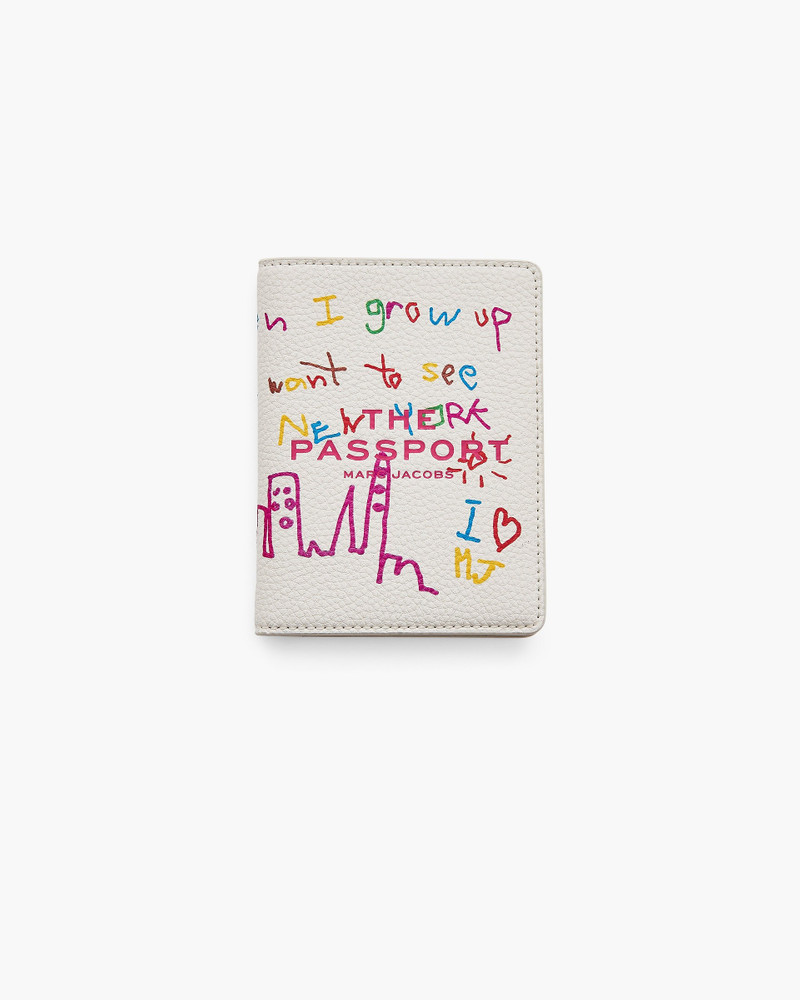 n I grow up
want to see
NEW YORK
THE
PASSPORT
MARC JACOBS
I
MJ